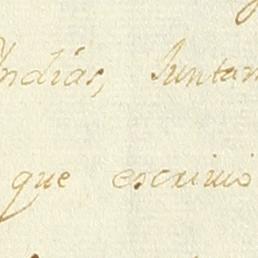 Indias, Juntam
que escriuio